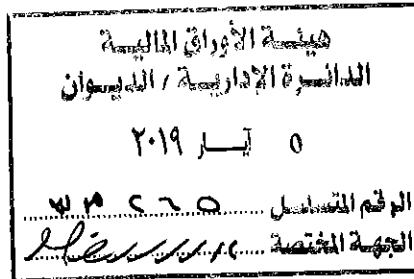 هيئة الأوراق المالية
الدائرة الإدارية / الديوان
٥ آيار ٢٠١٩
الرقم المتسلسل
الجهة المختصة